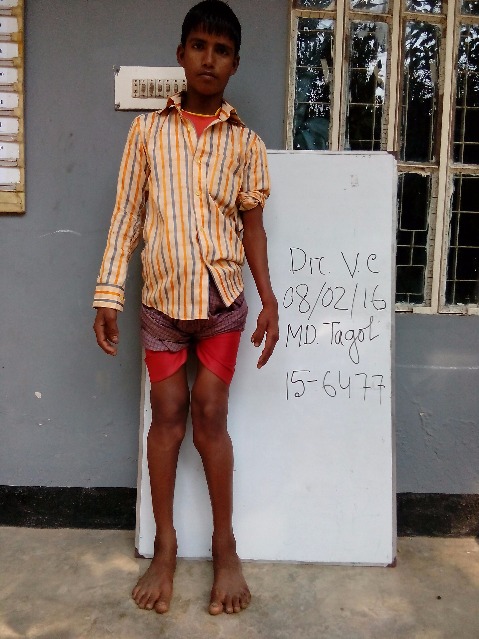 Dic. V.C
08/02/16
MD. Tagol
15-6477